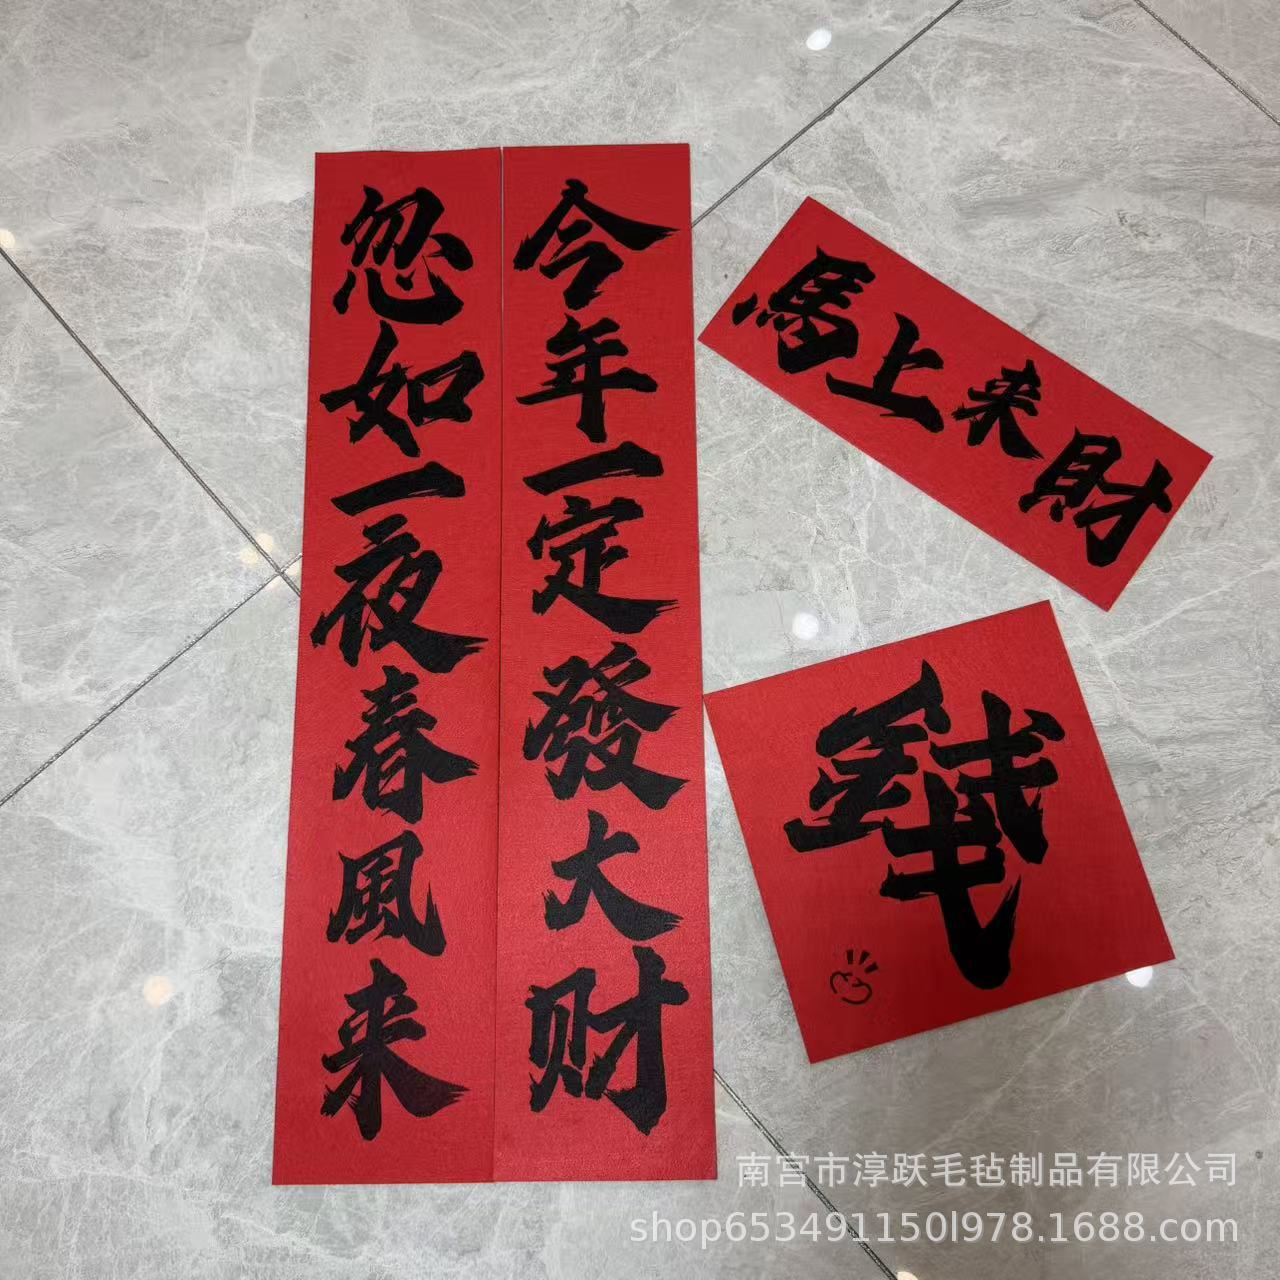 今年一定發大财
忽如一夜春風来
馬上来財
錢
南宫市淳跃毛毡制品有限公司
shop653491150l978.1688.com